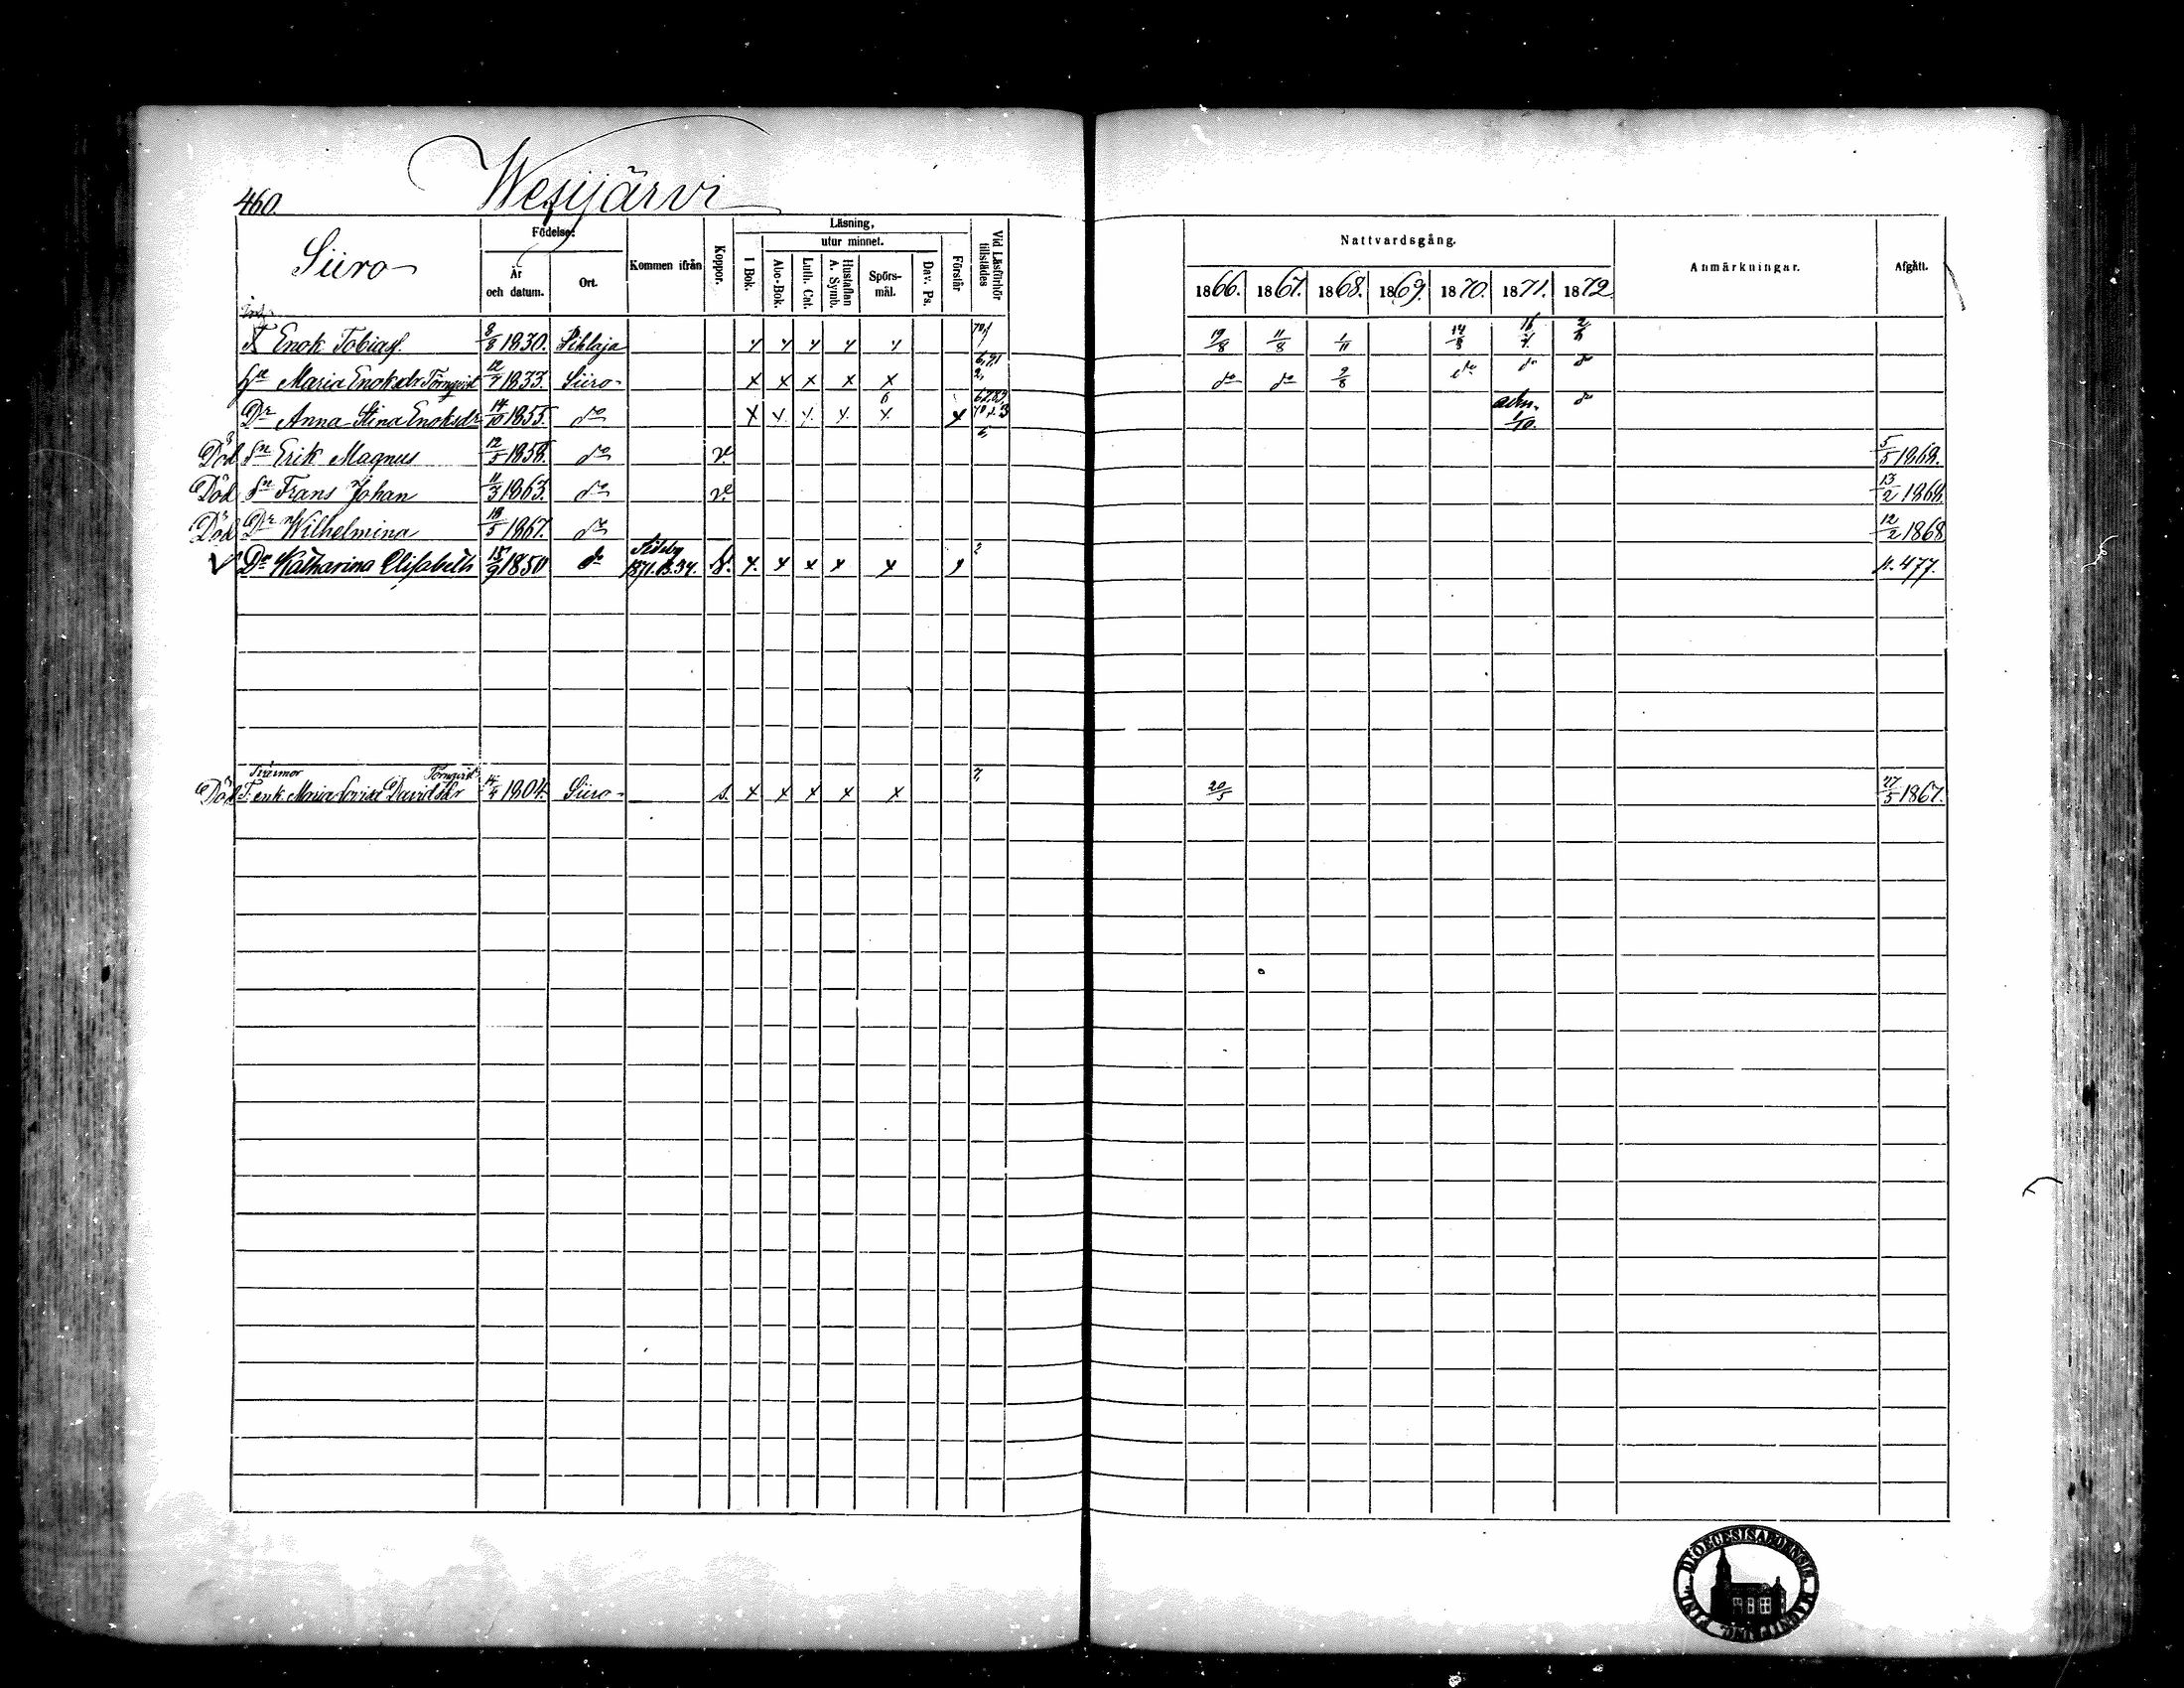 460. Wesijärvi
Siiro
Födelse:
År och datum.
Ort.
Kommen ifrån
Koppor.
Läsning,
utur minnet.
I Bok.
Abc-Bok.
Luth. Cat.
Hustaflan A. Symb.
Spörs-mål.
Dav. Ps.
Förstår
Vid Läsförhör tillstädes
Nattvardsgång.
1866. 1867. 1868. 1869. 1870. 1871. 1872.
Anmärkningar.
Afgått.
T. Enok Tobiass. 8/8 1830. Pihlaja x x x x x 70,1 19/8 11/8 1/11 14/8
Hu Maria Enoksdr Törnqvist 12/7 1833. Siiro x x x x x do do 9/8 do do do
Dr Anna Stina Enoksdr 14/10 1855. do x x x x x x adm. 1/10. do
Död Sn Erik Magnus 12/5 1858. do v. 6, 5/5 1868.
Död Sn Frans Johan 11/3 1863. do v. 13/2 1868.
Död Dr Wilhelmina 18/5 1867. do 12/2 1868
V Dr Katharina Elisabeth 15/9 1850 do Sideby 1871. B. 34. x. x x x x p. 477.
Svärmor Törnqvist
Död T. enk. Maria Lovisa Davidsdr 1804. Siiro s. x x x x x 20/5 27/5 1867.
DIOECESIS ABOENSIS